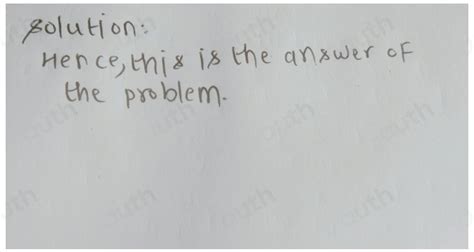 Solution:
Hence, this is the answer of
the problem.